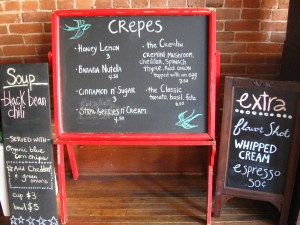 Soup
black bean
chili
SERVED WITH
organic blue
corn chips
Add Cheddar
& green
onions
cup $3
bowl $5
CREPES
Honey Lemon
3
Banana Nutella
4.50
Cinnamon n' Sugar
3
Strawberries n' Cream
4.50
the Cremini
cremini mushroom,
cheddar, spinach
thyme, red onion
topped with an egg
the Classic
tomato, basil, feta
extra
flavor Shot
WHIPPED
CREAM
espresso
50¢